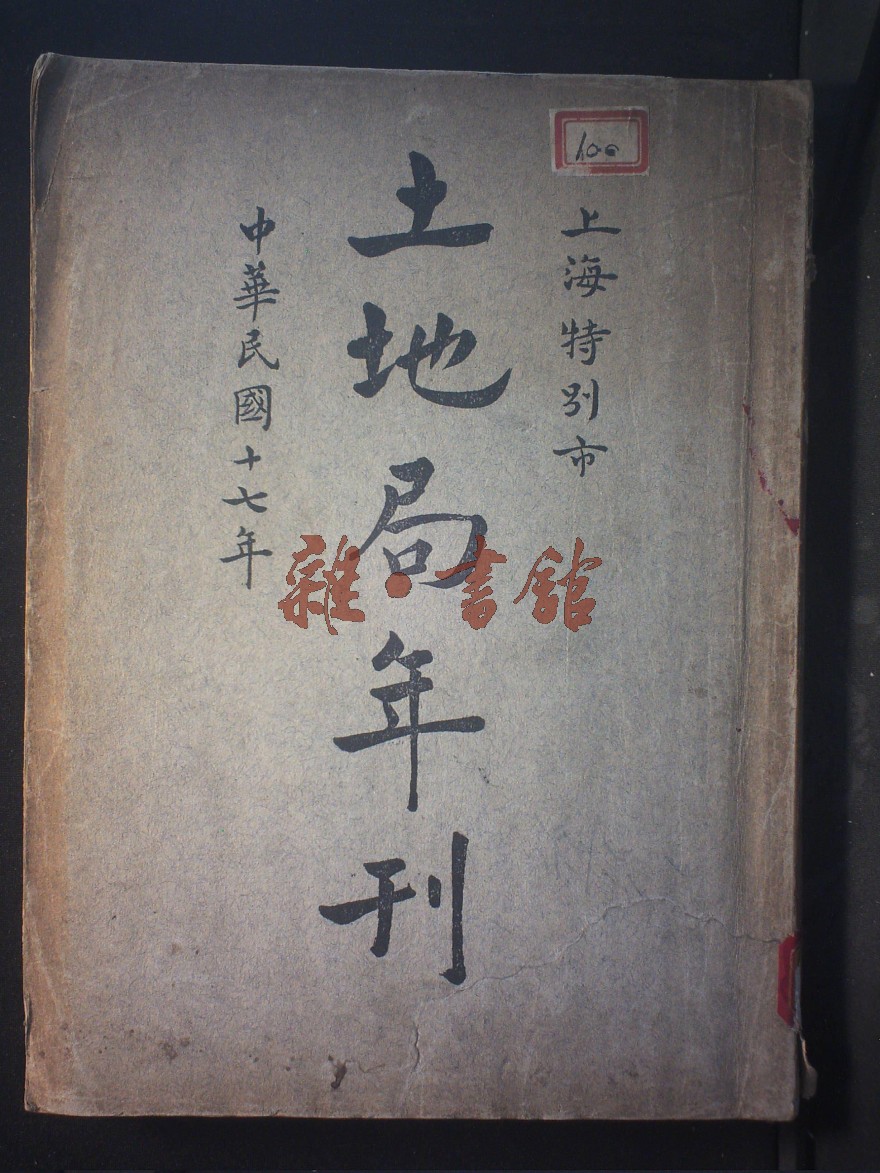 100
上海特別市
土地局年刊
中華民國十七年
雜·書館